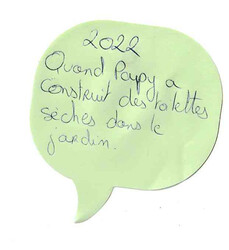 2022
Quand Papy a
construit des toilettes
sèches dans le
jardin.